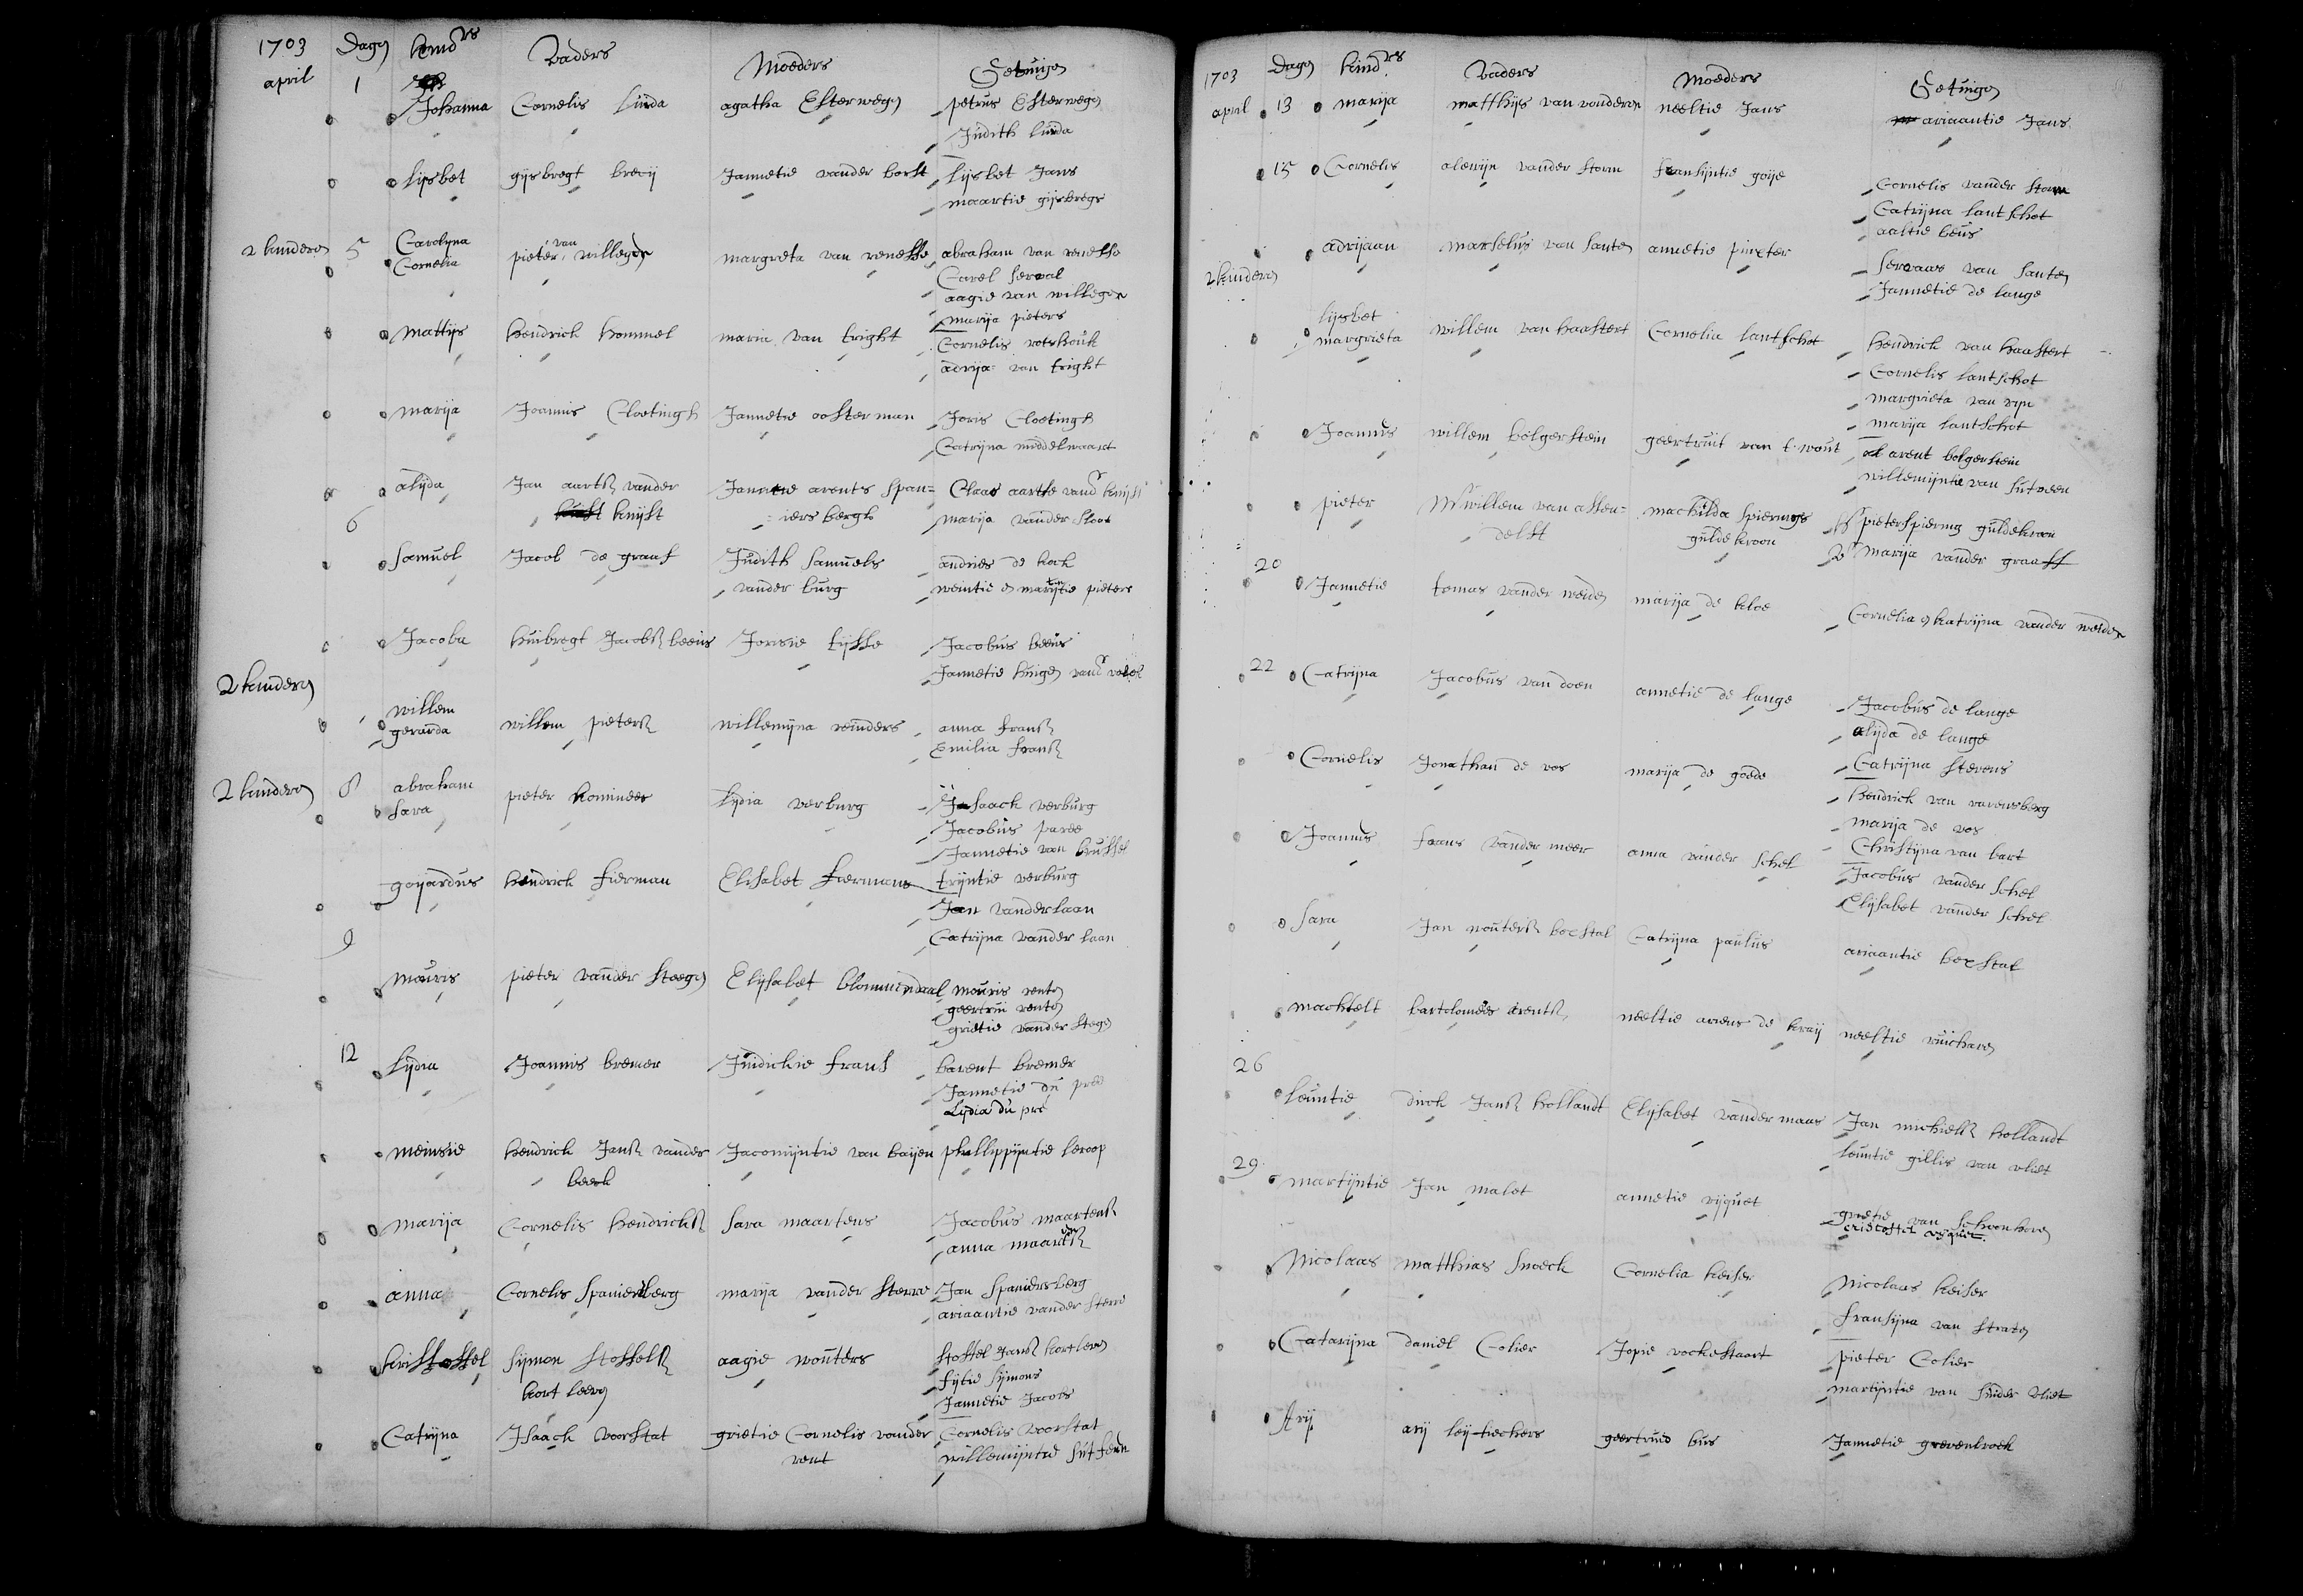 1703 Dagen kindrs Vaders Moeders Getuigen
april 1
Johanna Cornelis Linda agatha Esterwegen petrus Esterwegen
Judith Linda
Lijsbet gijsbregt breij Jannetie vander borst Lijsbet Jans
maartie gijsbregs
2 kinderen 5 Carolyna pieter van willegen margreta van renesse abraham van renesse
Cornelia Carel serval
aagie van willegen
marija pieters
mattijs hendrick hommel maria van tright Cornelis rotshouk
adrija van tright
marija Joannis Cloetingh Jannetie oosterman Joris Cloetingh
Catrijna middelwaart
alijda Jan aarts vander Jannetie arents span= Claas aartse vandr knijst
knijst =iers bergh marija vander sloot
6
Samuel Jacob de graaf Judith Samuels andries de kock
vander burg weintie en marijtie pieters
Jacoba huibregt Jacobs beeus Jorisie tijsse Jacobus beeus
Jannetie huigen vandr
2 kinderen
willem willem pieters willemijna reinders anna frans
gerarda Emilia frans
2 kinderen 8 abraham pieter kominee Lydia verburg Isaack verburg
Sara Jacobus paree
Jannetie van brussel
trijntie verburg
goijardus hendrick fierman Elisabet fiermans Jan vanderlaan
Catrijna vander laan
9
mouris pieter vander steegen Elijsabet blommendaal mouris renten
geertrui renten
grietie vander stegen
12 Lydia Joannis bremer Judickie frans barent bremer
Jannetie du pree
Lydia du pre
meinsie hendrick Jans vander Jacomijntie van baijen phillippijntie seroop
beek
marija Cornelis hendricks Sara maartens Jacobus maartens
anna maartens
anna Cornelis Spaniersberg marija vander sterre Jan Spaniersberg
ariaantie vander sterre
kristoffel Sijmon stoffels aagie wouters stoffel Jans kortleven
kort leven fijtie Sijmons
Jannetie Jacobs
Catrijna Isaack voorstat grietie Cornelis vander Cornelis voorstat
vent willemijntie
1703 Dagen kindrs Vaders Moeders Getuigen
april 13 marija matthijs van vonderen neeltie Jans ariaantie Jans
15 Cornelis alewijn vander storm fransijntie goije Cornelis vander storm
Catrijna lantschot
aaltie beus
adrijaan marselis van santen annetie pinxter Servaas van santen
2 kinderen Jannetie de lange
lijsbet willem van haastert Cornelia lantschot hendrick van haastert
margrieta Cornelis lantschot
margrieta van rijn
marija lantschot
Joannis willem bolgerstein geertruit van t wout arent bolgerstein
willemijntie van
pieter Mr willem van assen= machilda spierings pieter spiering guldekroon
delft guldekroon marija vander graaff
20
Jannetie tomas vander weiden marija de kloe Cornelia en katrijna vander weiden
22 Catrijna Jacobus van doen annetie de lange Jacobus de lange
alijda de lange
Cornelis Jonathan de vos marija de goede Catrijna stevens
hendrick van varensberg
marija de vos
Joannis frans vander meer anna vander schel Christijna van bart
Jacobus vander schel
Elijsabet vander schel
Sara Jan wouters boxstal Catrijna paulus ariaantie boxstal
machtelt bartolomees arents neeltie ariens de kraij neeltie
26
leuntie dirck Jans hollandt Elijsabet vander maas Jan michiels hollandt
leuntie gillis van vliet
29 martijntie Jan malet annetie rijquet grietie van schoonhoven
cristoffel rijquet
Nicolaas matthias snoeck Cornelia keiser Nicolaas keiser
fransijna van straten
Catarijna daniel Colier Jopie rockestaart pieter Colier
martijntie van suider vliet
Arij arij leij-deckers geertruid bus Jannetie grevenbroek